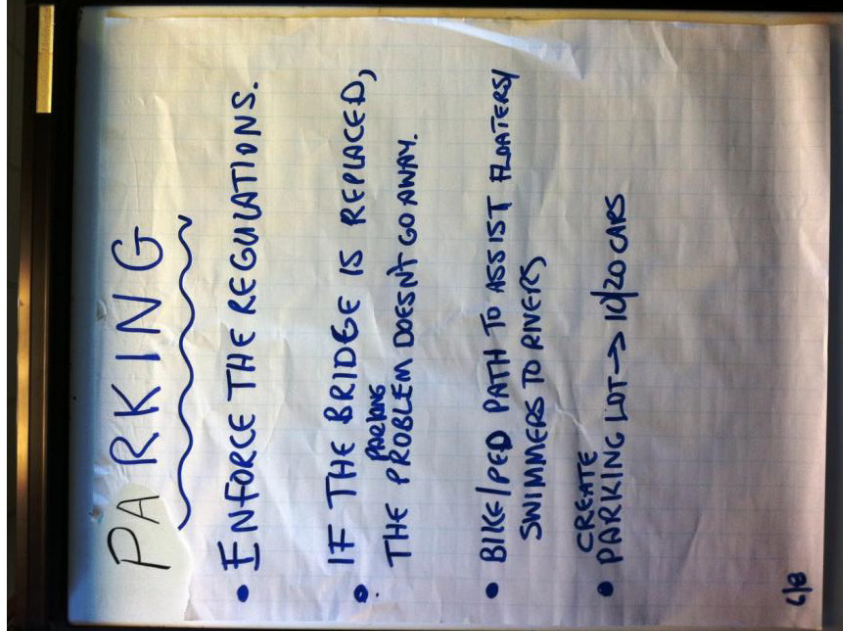 PARKING
• ENFORCE THE REGULATIONS.
• IF THE BRIDGE IS REPLACED,
PARKING
THE PROBLEM DOESN'T GO AWAY.
• BIKE/PED PATH TO ASSIST FLOATERS/
SWIMMERS TO RIVERS,
CREATE
• PARKING LOT → 10/20 CARS
6/8